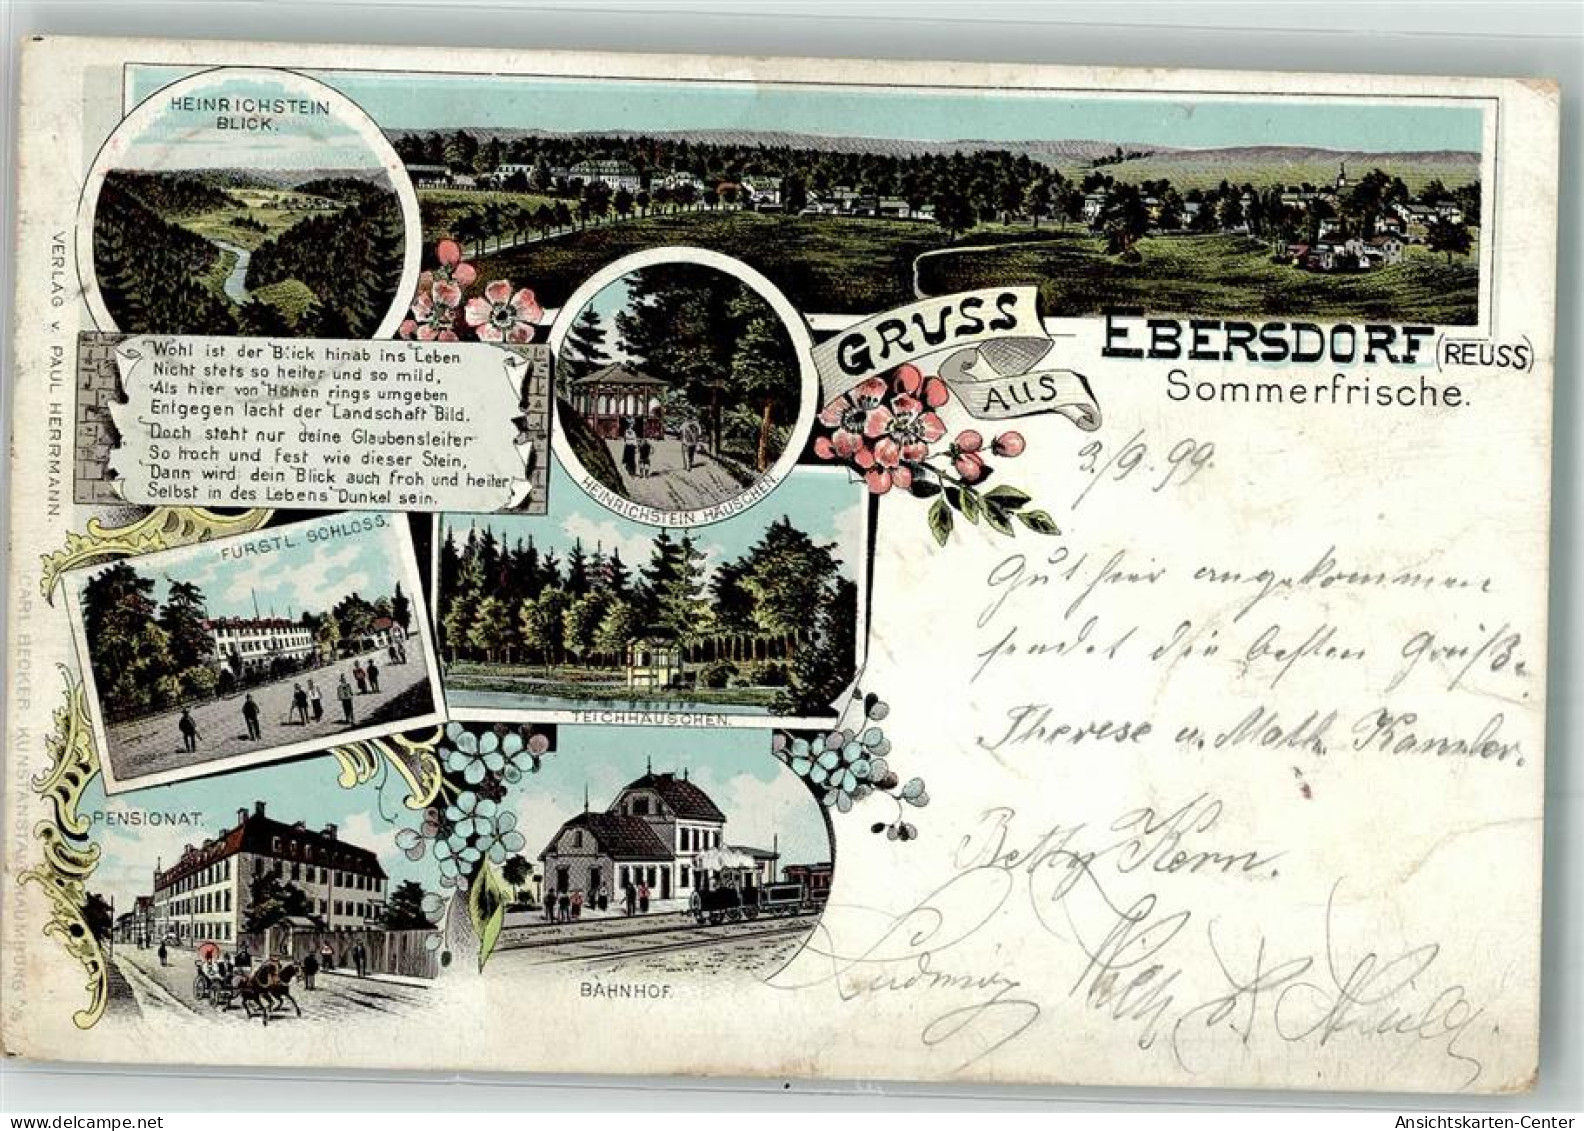 HEINRICHSTEIN
BLICK.
Wohl ist der Blick hinab ins Leben
Nicht stets so heiter und so mild,
Als hier von Höhen rings umgeben
Entgegen lacht der Landschaft Bild.
Doch steht nur deine Glaubensleiter
So hoch und fest wie dieser Stein,
Dann wird dein Blick auch froh und heiter
Selbst in des Lebens Dunkel sein.
HEINRICHSTEIN HÄUSCHEN.
GRUSS
AUS
EBERSDORF (REUSS)
Sommerfrische.
FÜRSTL. SCHLOSS.
TEICHHÄUSCHEN.
PENSIONAT.
BAHNHOF.
VERLAG v. PAUL HERRMANN.
CARL BECKER, KUNSTANSTALT, NAUMBURG a/S
3./9.99.
Gut hier angekommen
sendet die besten Grüße
Therese u. Math.
Betty Kern.
Ludwig
Ansichtskarten-Center